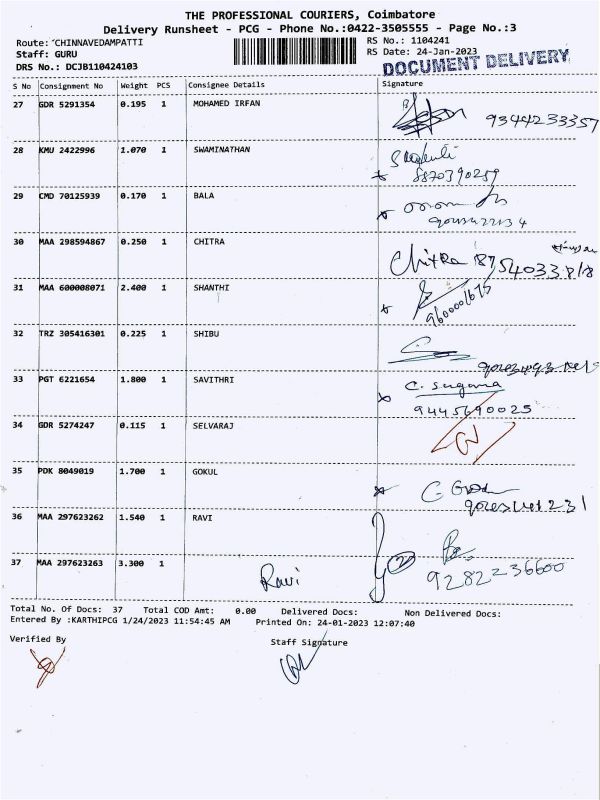 THE PROFESSIONAL COURIERS, Coimbatore
Delivery Runsheet - PCG - Phone No.:0422-3505555 - Page No.:3
Route: CHINNAVEDAMPATTI
Staff: GURU
DRS No.: DCJB110424103
RS No.: 1104241
RS Date: 24-Jan-2023
DOCUMENT DELIVERY
S No Consignment No Weight PCS Consignee Details Signature
27 GDR 5291354 0.195 1 MOHAMED IRFAN 9344233357
28 KMU 2422996 1.070 1 SWAMINATHAN 8870390259
29 CMD 70125939 0.170 1 BALA
30 MAA 298594867 0.250 1 CHITRA Chitra
31 MAA 600008071 2.400 1 SHANTHI
32 TRZ 305416301 0.225 1 SHIBU
33 PGT 6221654 1.800 1 SAVITHRI C. Sugana
9445690025
34 GDR 5274247 0.115 1 SELVARAJ
35 PDK 8049019 1.700 1 GOKUL
36 MAA 297623262 1.540 1 RAVI
37 MAA 297623263 3.300 1 Ravi 2 9282236600
Total No. Of Docs: 37 Total COD Amt: 0.00 Delivered Docs: Non Delivered Docs:
Entered By :KARTHIPCG 1/24/2023 11:54:45 AM Printed On: 24-01-2023 12:07:40
Verified By Staff Signature